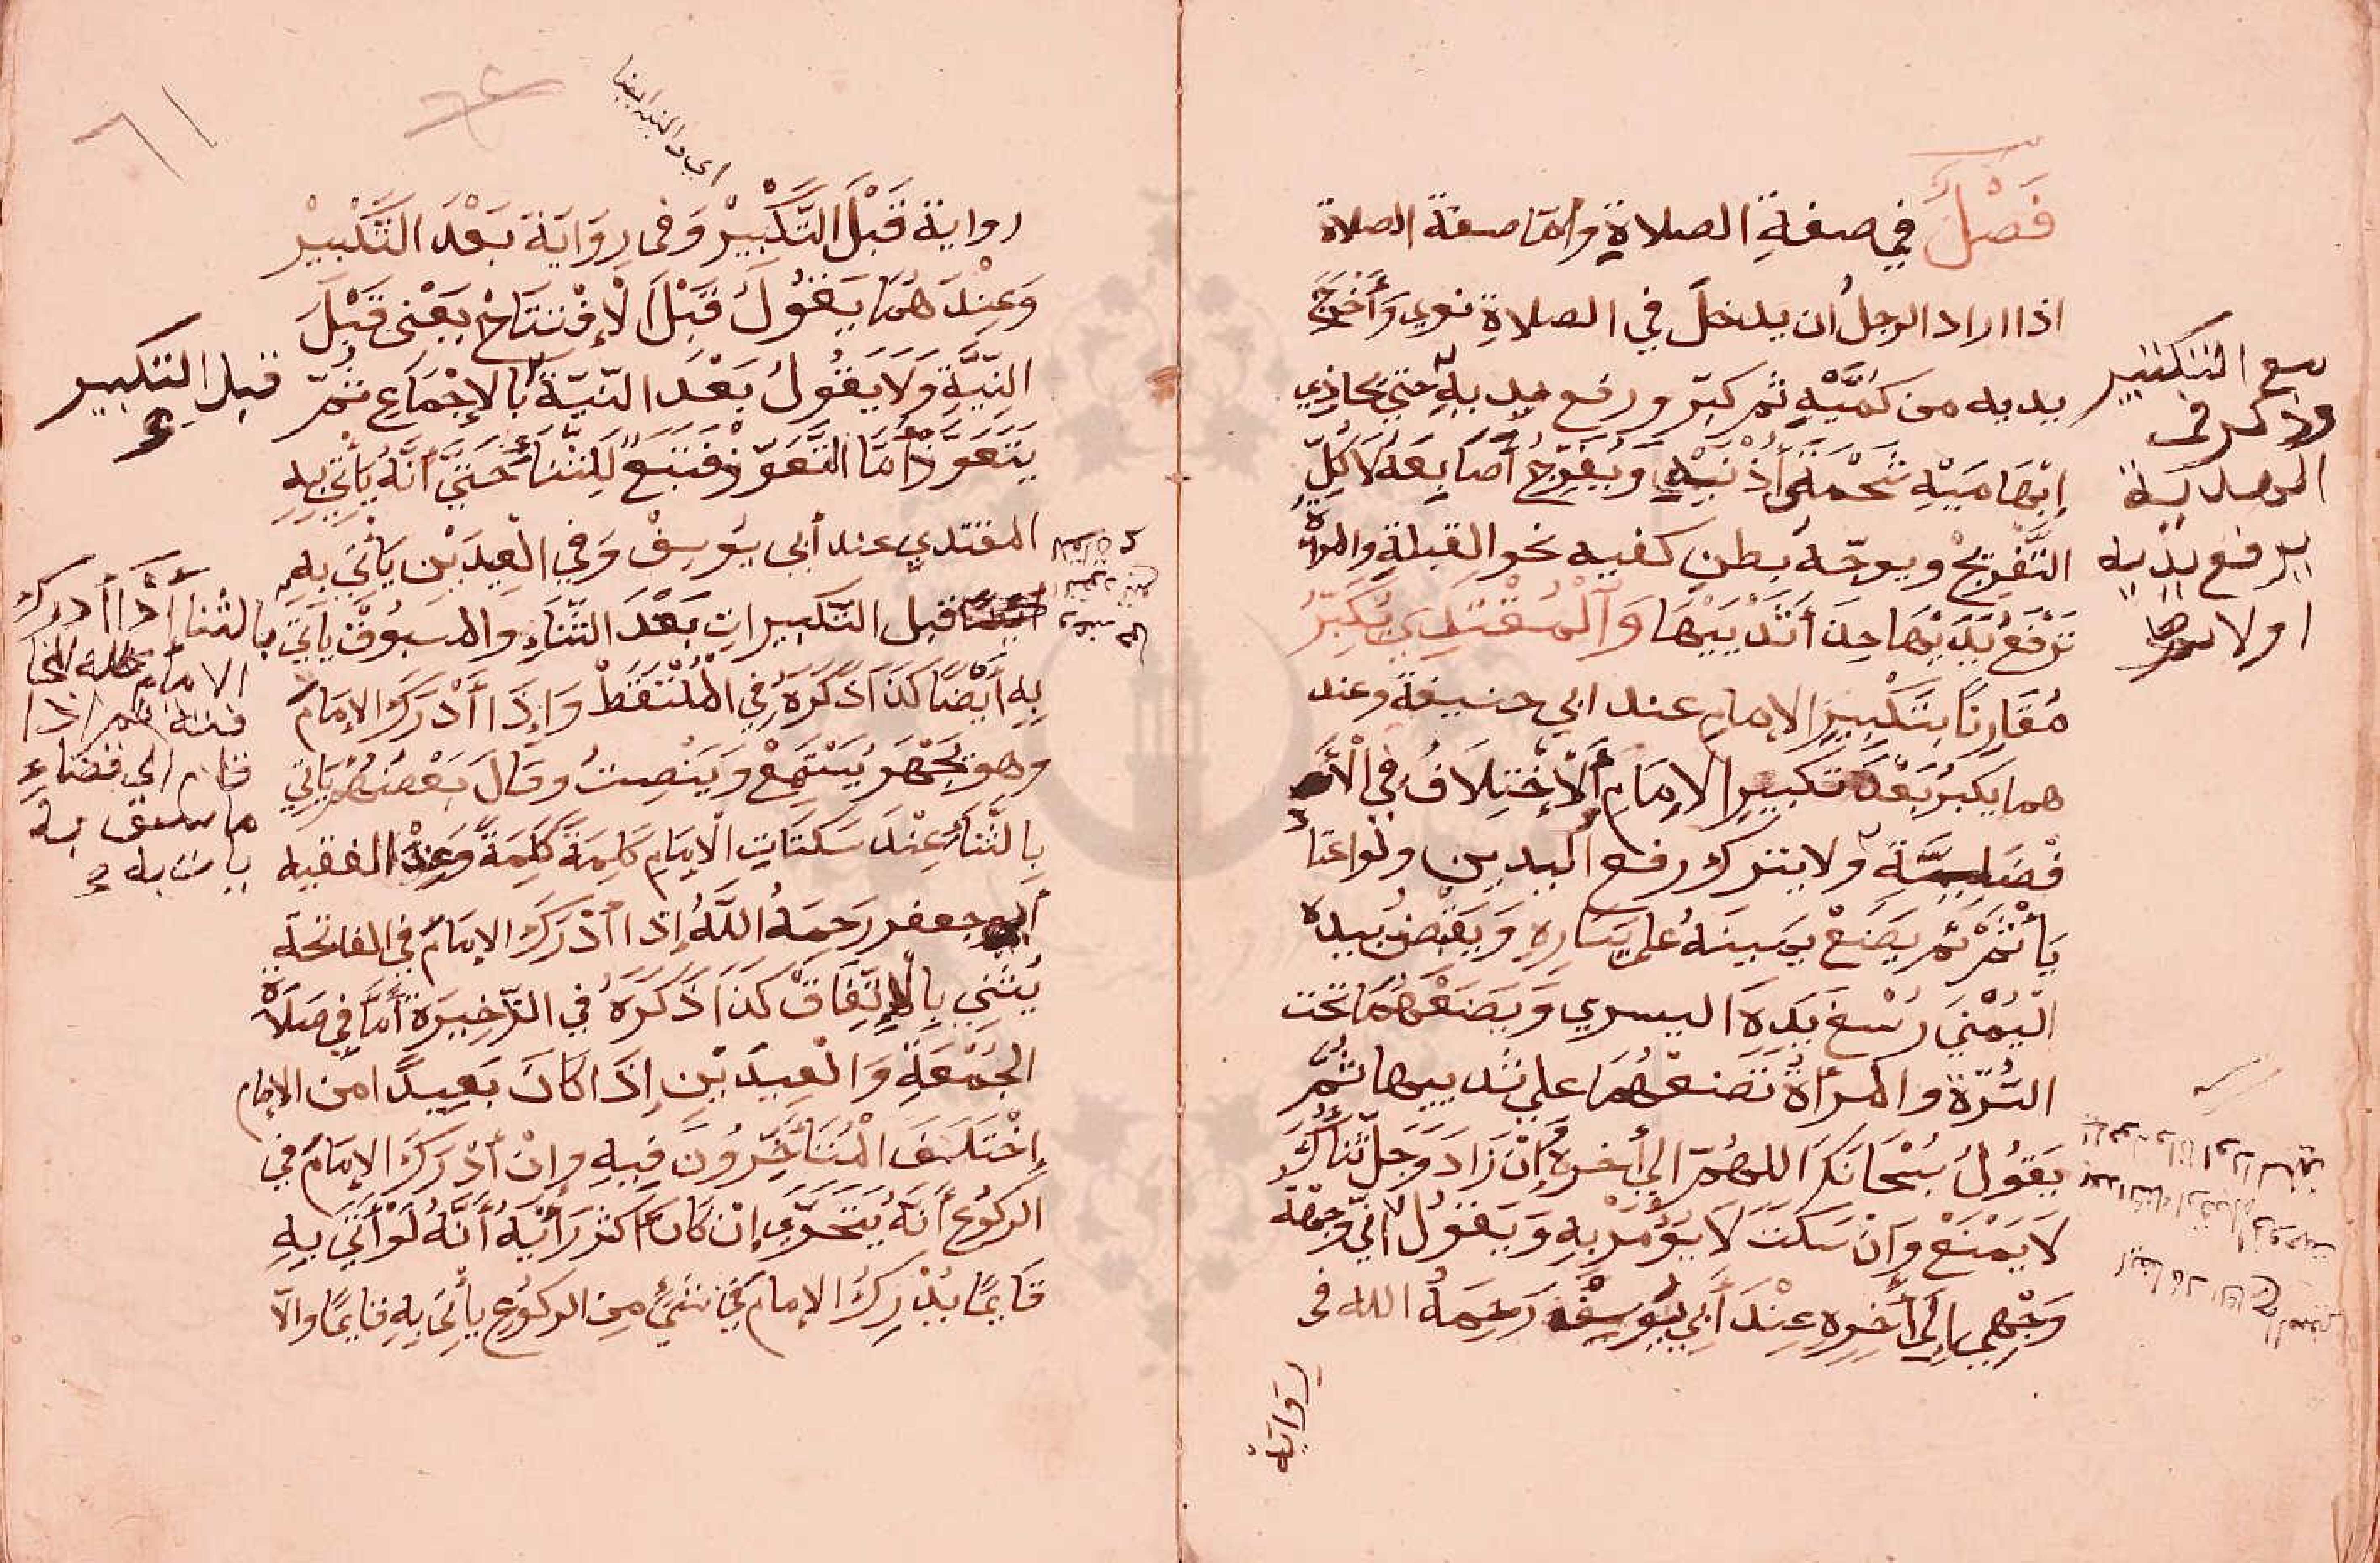 فَصْلٌ في صفةِ الصلاةِ وامّا صفة الصلاة
اذا اراد الرجلُ ان يدخلَ في الصلاةِ نوي وَأَخْرَجَ
يديه من كمَّيْهِ ثم كبّر ورفع يديهِ حتي يحاذِي
إبْهَامَيْهِ شَحْمَةَ أُذْنَيْهِ وَيُفَرِّجُ أَصَابِعَهُ لَا كُلَّ
التَّفْرِيْجْ ويوجّهُ بطن كفيه نحو القبلةِ والمرأة
تَرْفَعُ يَدَيْهَا حِذَاَ ثَدْيَيْهَا وَالْمُقْتَدِي يُكَبِّرُ
مُقَارِنًا بِتَكْبِيْرِ الإمامِ عند ابي حنيفة وعند
هما يكبرُ بَعْدَ تكبيرِ الإمَامِ الْإخْتِلَافُ فِي الْأَ
فْضَلِيَّةِ ولا يترك رفع اليدين ولو اعتا
يَأْثَمْ ثم يَضَعْ يمينهُ علي يسَارِهِ وَيَقْبِضُ بيده
اليُمْنَي رُسْغَ يَدِهِ اليسري وَيَضَعْهُمَا تحت
السُّرّةِ والمرأةُ تَضَعْهُمَا علي ثدييها ثُمَّ
يَقُولُ سُبْحَانَكَ اللهُمّ الي أخره وَإنْ زَادَ وَجَلَّ ثَنَاؤُكَ
لَا يَمْنَعْ وَانْ سَكَتَ لَا يُؤْمَرْ بِهِ وَيَقُولُ اِنِّي وَجَّهْتُ
وَجْهِي اِلَي أَخِرِهِ عِنْدَ أَبِي يُوسِفْ رَحِمَهُ الله في
رِوَايَةْ
سع التكبير
وذكر في
يرفع يديه
اولا
رواية قَبْلَ التَّكْبِيْرْ وَفي رِوَايَةْ بَعْدَ التَّكْبِيْرْ
وَعِنْدَ هُمَا يَقُوْلُ قَبْلَ الْإفْتِتَاحْ يَعْنِي قَبْلَ
النِيَّةِ وَلَا يقُولُ بَعْدَ النّيّةَ بالإجْمَاعِ ثُمّ
يَتَعَوَّذْ أَمَّا التَّعَوّذ فَتَبَعٌ لِلثَّنَأْ حَتَّيَ أَنَّهُ يَأْتِي بِهِ
المقتدي عند أبي يؤسِفْ وَفي الْعِيدَيْنِ يَأْتِي بِهِ
قبل التّكبيراتِ بَعْدَ الثَّنَاءِ والمسبُوقْ يَاتِي بالثناء إِذَا أَدرك
بِهِ أَيْضًا كَذَا ذَكَرَهُ فِي الْمُلْتَقَطْ وَإِذَا أَدْرَكَ الإِمَامَ
وهو يَجْهَر يَسْتَمِعْ وَيَنْصِتُ وقالَ بَعْضُهُمْ يَاتي
بِالثَّنَاءُ عِنْدَ سَكَتَاتِ الْاِمَامِ كَلِمَةً كَلِمَةً وَعِنْدَ الفقيه
أبو جعفر رَحِمَهُ اللَّهُ إِذا أَدْرَكَ الإِمَامَ في الفاتحة
يُثْنِي بِالْإِتِّفَاقْ كذا ذَكَرَهُ في الذّخِيرَة أَمَّا فِي صَلَاة
الجُمْعَةِ وَالْعِيدَيْنِ إِذَا كَانَ بَعِيدًا من الامام
إخْتَلَفَ الْمُتَأَخِّرُوْنَ فِيهِ وانْ أدْرَكَ الإمَامَ فِي
الرَكُوْعِ أَنَّهُ يَتَحَرَّي إنْ كَانَ أكثر رَأْيَهُ أَنَّهُ لَوْ أَتَي بِهِ
قَايِمًا يُدْرِكُ الإمامَ فِي شَيْءٍ مِنَ الركُوْعِ يأْتِي بِهِ قايمًا والّا
قبل التكبير
الامام حالة المخا
فتة ثم اذا
قام الي قضاءِ
ما سبق به
ياتي به
٦١